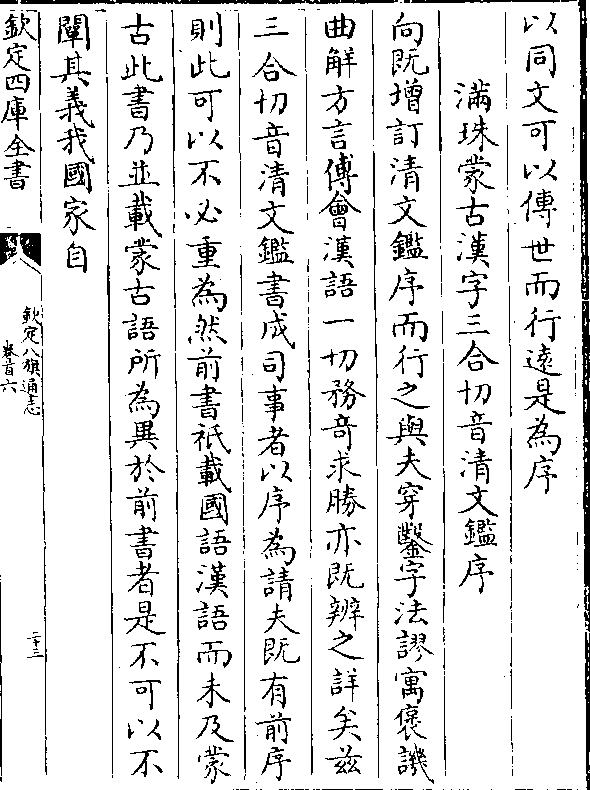 以同文可以傳世而行遠是為序
滿珠蒙古漢字三合切音清文鑑序
向既增訂清文鑑序而行之與夫穿鑿字法謬寓褒譏
曲解方言傅會漢語一切務竒求勝亦既辨之詳矣兹
三合切音清文鑑書成司事者以序為請夫既有前序
則此可以不必重為然前書祇載國語漢語而未及蒙
古此書乃並載蒙古語所為異於前書者是不可以不
闡其義我國家自
欽定四庫全書
欽定八旗通志
卷首六
二十三